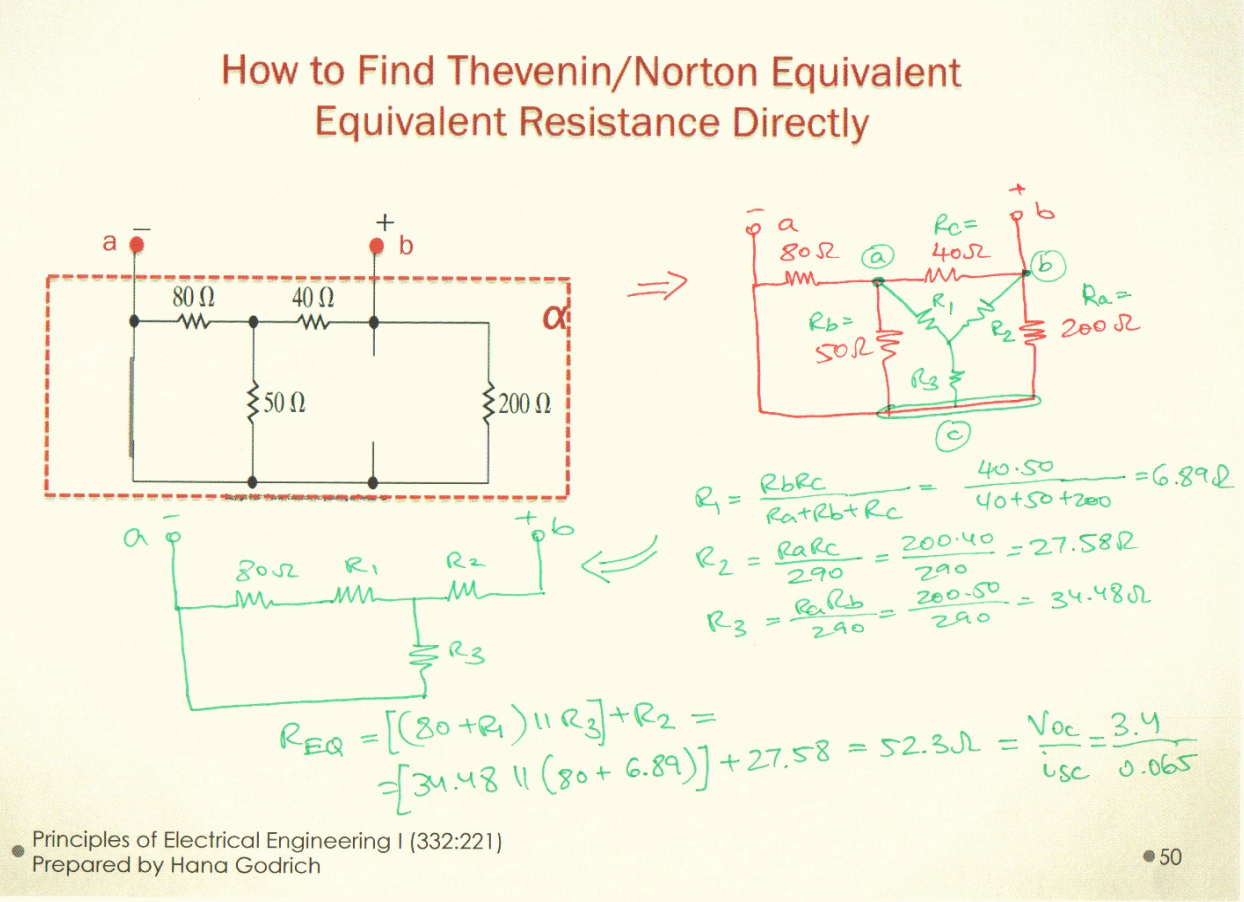 How to Find Thevenin/Norton Equivalent
Equivalent Resistance Directly
a −
+ b
80 Ω
40 Ω
α
50 Ω
200 Ω
− a
+ b
80Ω
a
Rc=
40Ω
b
R1
R2
Ra=
200Ω
Rb=
50Ω
R3
c
R1 = RbRc / (Ra+Rb+Rc) = 40·50 / (40+50+200) = 6.89Ω
R2 = RaRc / 290 = 200·40 / 290 = 27.58Ω
R3 = RaRb / 290 = 200·50 / 290 = 34.48Ω
a −
+ b
80Ω
R1
R2
R3
REQ = [(80+R1) || R3] + R2 =
= [34.48 || (80+ 6.89)] + 27.58 = 52.3Ω = Voc / isc = 3.4 / 0.065
Principles of Electrical Engineering I (332:221)
Prepared by Hana Godrich
50